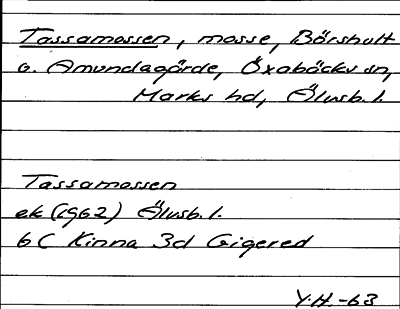 Tassamossen, mosse, Börshult
o. Amundagärde, Öxabäcks sn,
Marks hd, Älvsb. l.
Tassamossen
ek (1962) Älvsb. l.
6C Kinna 3d Gigered
Y.H.-63